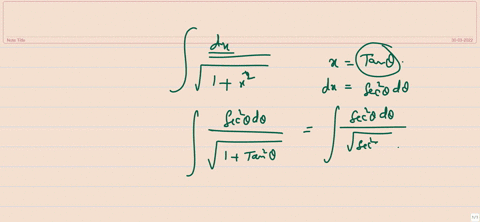 Note Title
∫ dx / √(1 + x²)
x = Tanθ.
dx = Sec²θ dθ
∫ Sec²θ dθ / √(1 + Tan²θ) = ∫ Sec²θ dθ / √(Sec²
1/1